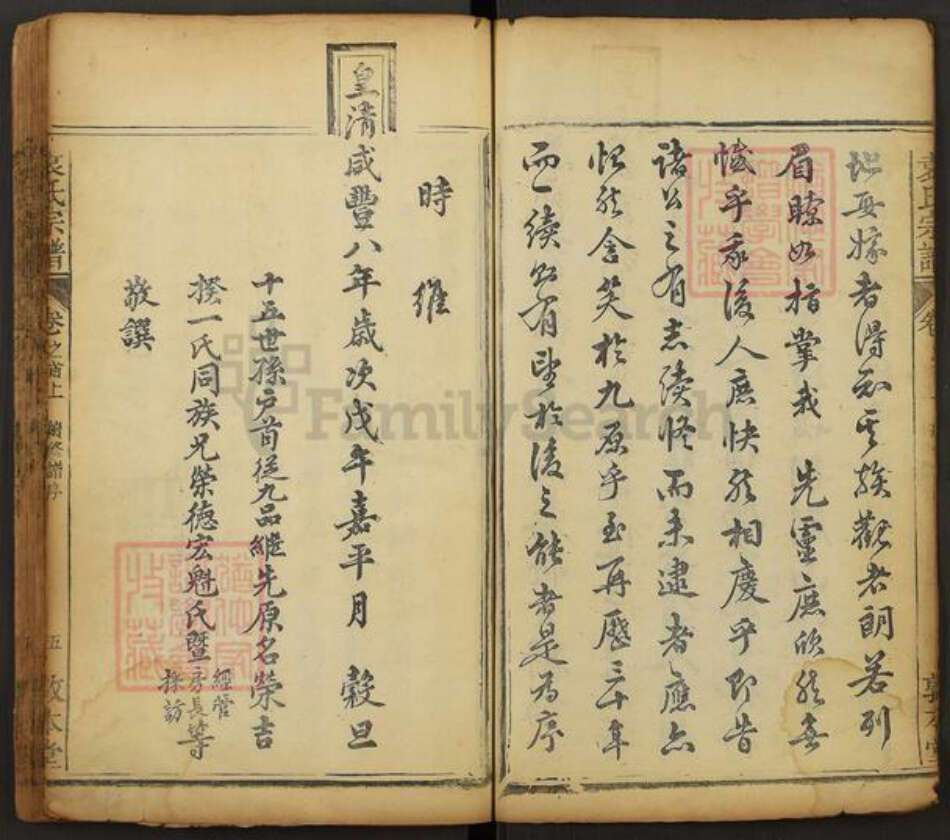 地再嫁者得知其族觀者朗若列
眉瞭如指掌哉 先靈庶欣然無
憾乎我後人庶快然相慶乎即昔
諸公之有志續修而未逮者應亦
怡然含笑於九原乎至再歷三十年
而一續召有望於後之能者是為序
時維
皇清咸豐八年歲次戊午嘉平月 穀旦
十五世孫戶首從九品繼先原名榮吉
揆一氏同族兄榮德宏魁氏暨經管房長採訪等
敬譔
袁氏宗譜 卷之首上 續修譜序 五 敦本堂
FamilySearch